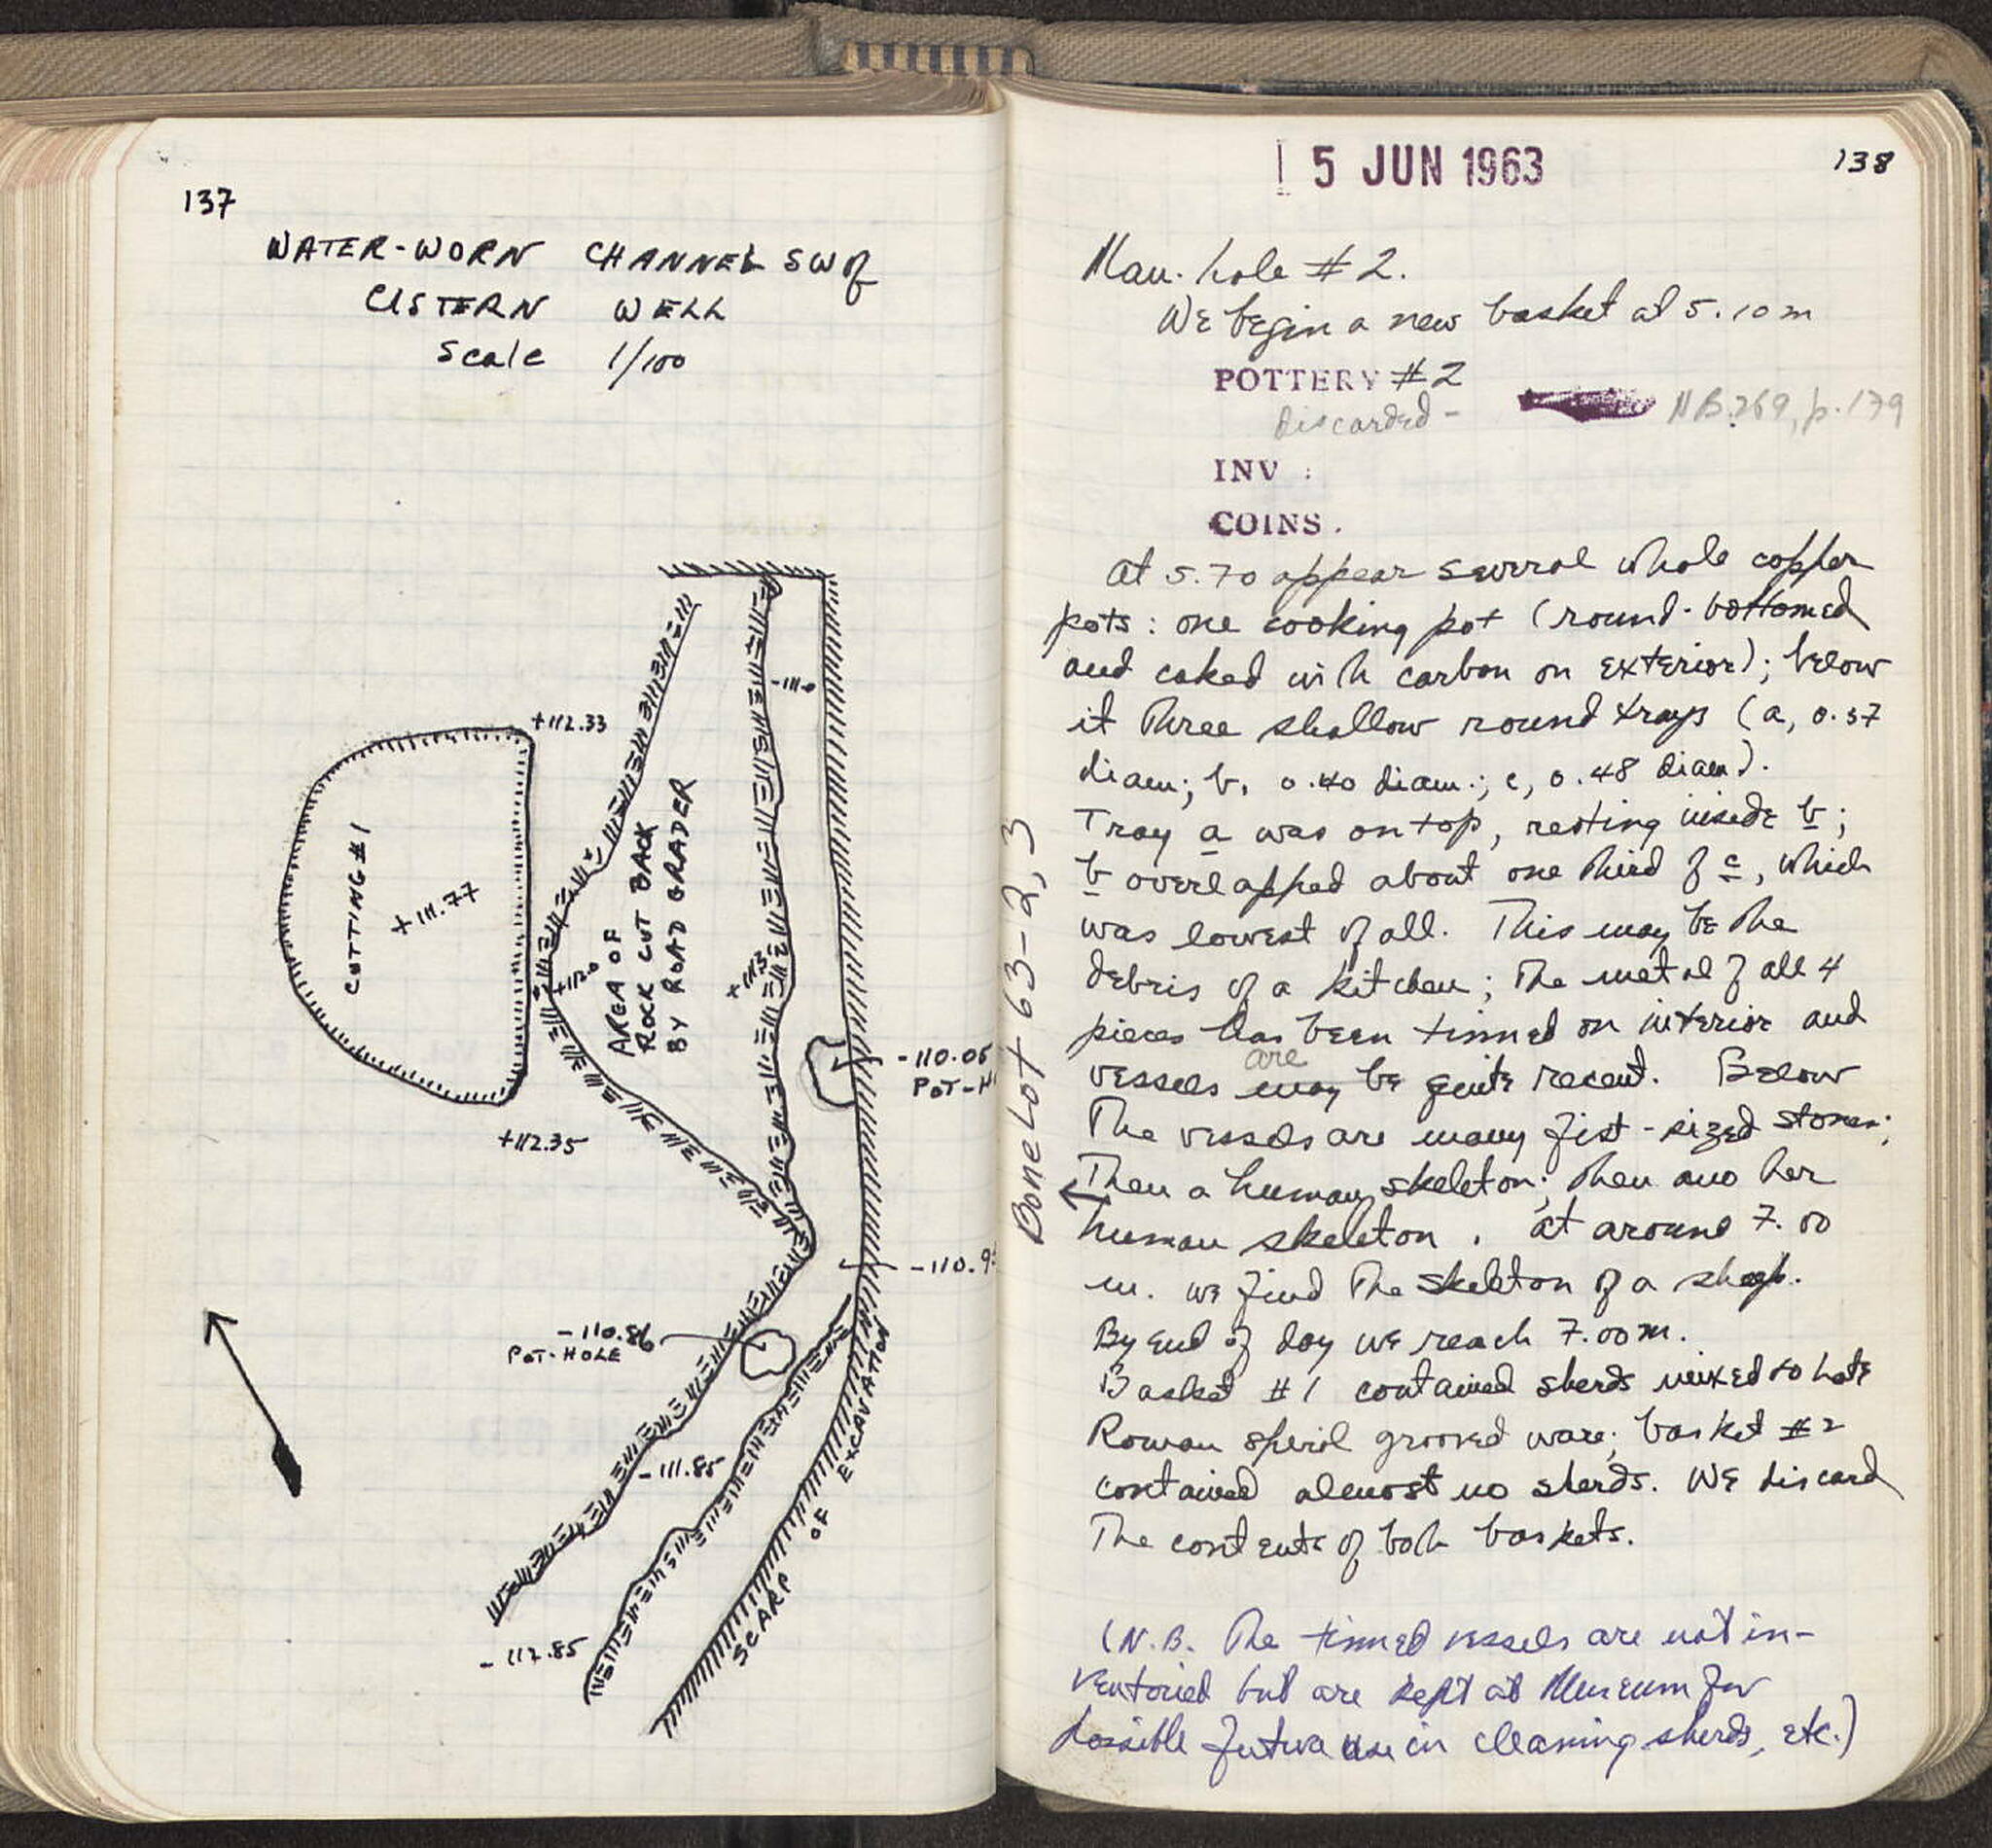 137
WATER-WORN CHANNEL SW of
CISTERN WELL
Scale 1/100
-111.0
+112.33
CUTTING #1
+111.77
AREA OF
ROCK CUT BACK
BY ROAD GRADER
+112.0
+113
-110.05
POT-H
+112.35
-110.9
-110.86
POT-HOLE
-111.85
-112.85
SCARP OF EXCAVATION
15 JUN 1963
138
Man. hole #2.
We begin a new basket at 5.10m
POTTERY #2
Discarded -
NB.269, p.179
INV :
COINS.
At 5.70 appear several whole copper
pots: one cooking pot (round-bottomed
and caked with carbon on exterior); below
it three shallow round trays (a, 0.37
diam; b, 0.40 diam.; c, 0.48 diam).
Tray a was on top, resting inside b;
b overlapped about one third of c, which
was lowest of all. This may be the
debris of a kitchen; The metal of all 4
pieces has been tinned on interior and
are
vessels may be quite recent. Below
The vessels are many fist-sized stones;
Then a human skeleton; then another
human skeleton. At around 7.00
m. we find the skeleton of a sheep.
By end of day we reach 7.00m.
Basket #1 contained sherds mixed to Late
Roman spiral grooved ware; basket #2
contained almost no sherds. We discard
The contents of both baskets.
Bone Lot 63-2, 3
(N.B. The tinned vessels are not in-
ventoried but are kept at Museum for
possible future use in cleaning sherds, etc.)